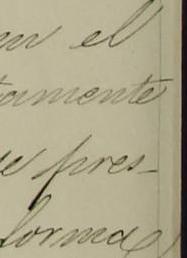 en el
tamente
e pres-
forma